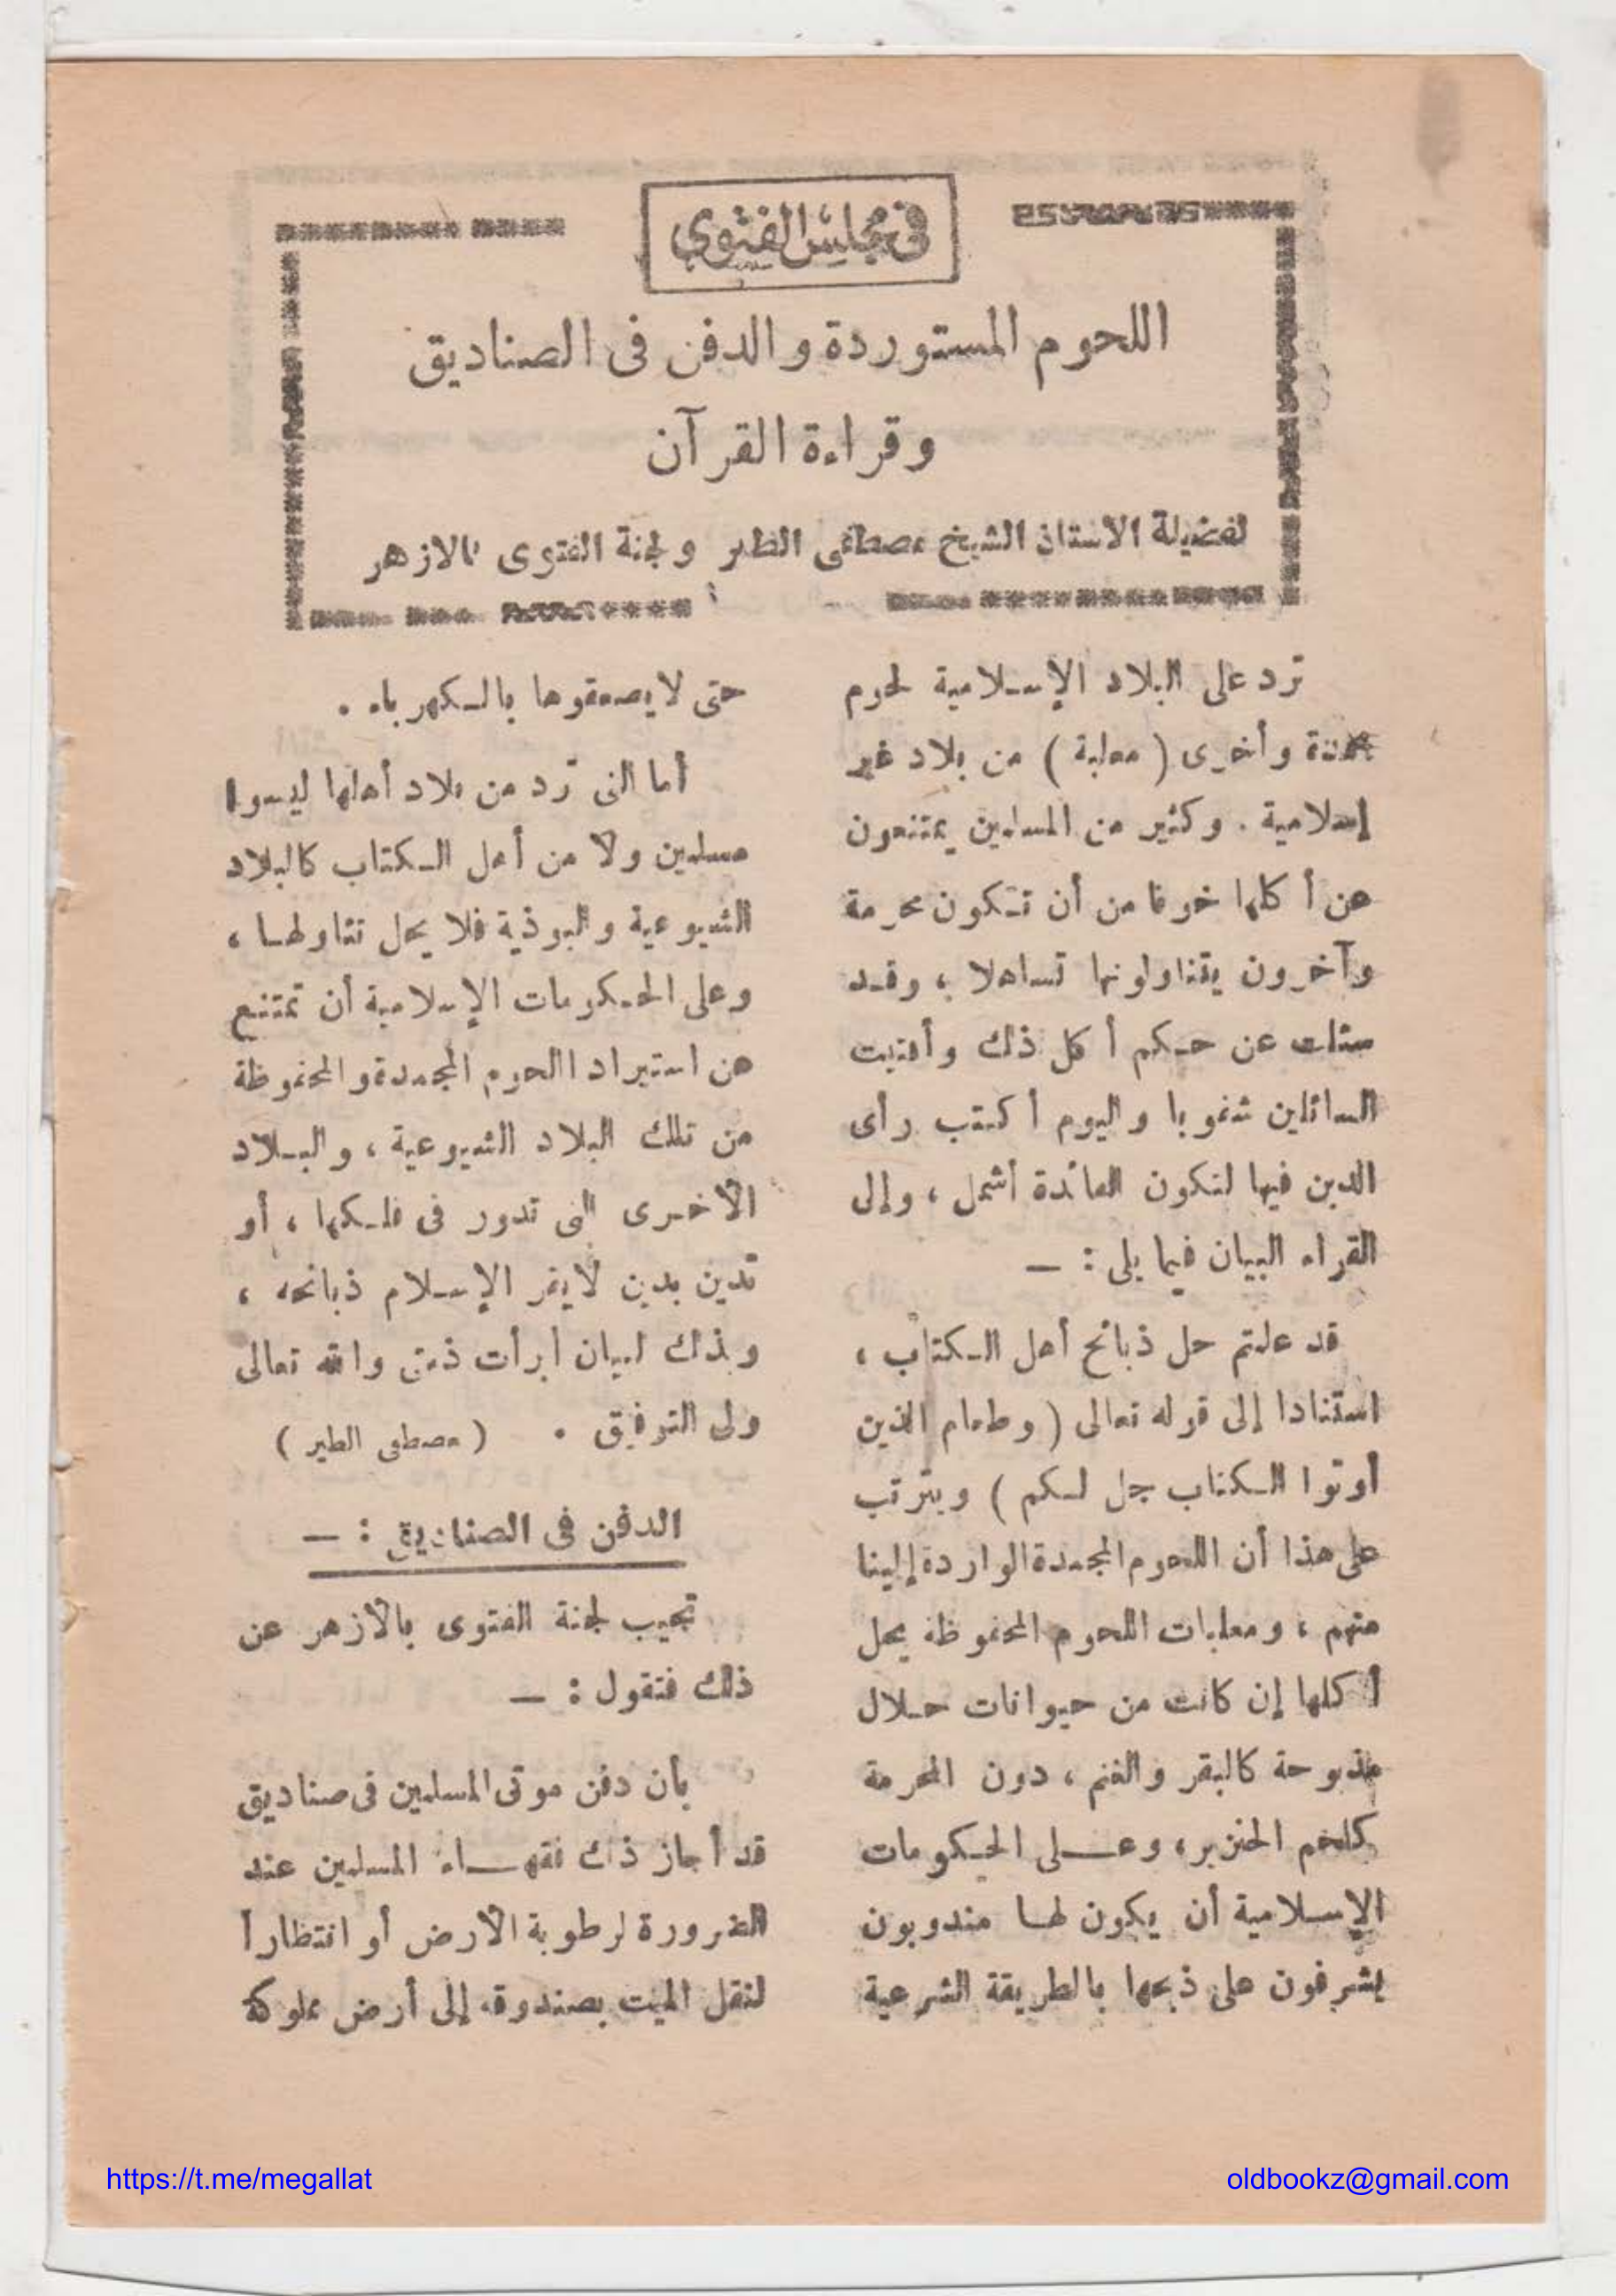 في مجلس الفتوى
اللحوم المستوردة والدفن فى الصناديق
وقراءة القرآن
لفضيلة الاستاذ الشيخ مصطفى الطير ولجنة الفتوى بالازهر
ترد على البلاد الإسلامية لحوم
مجمدة وأخرى ( معلبة ) من بلاد غير
إسلامية . وكثير من المسلمين يمتنعون
عن أكلها خوفا من أن تكون محرمة
وآخرون يتناولونها تساهلا ، وقد
سئلت عن حكم أكل ذلك وأفتيت
السائلين شفويا واليوم أكتب رأى
الدين فيها لتكون الفائدة أشمل ، وإلى
القراء البيان فيما يلى : —
قد علمتم حل ذبائح أهل الكتاب ،
استنادا إلى قوله تعالى ( وطعام الذين
أوتوا الكتاب حل لكم ) ويترتب
على هذا أن اللحوم المجمدة الواردة إلينا
منهم ، ومعلبات اللحوم المحفوظة يحل
أكلها إن كانت من حيوانات حلال
مذبوحة كالبقر والغنم ، دون المحرمة
كلحم الخنزير ، وعلى الحكومات
الإسلامية أن يكون لها مندوبون
يشرفون على ذبحها بالطريقة الشرعية
حتى لا يصعقوها بالكهرباء .
أما التى ترد من بلاد أهلها ليسوا
مسلمين ولا من أهل الكتاب كالبلاد
الشيوعية والبوذية فلا يحل تناولها ،
وعلى الحكومات الإسلامية أن تمتنع
عن استيراد اللحوم المجمدة والمحفوظة
من تلك البلاد الشيوعية ، والبلاد
الأخرى التى تدور فى فلكها ، أو
تدين بدين لا يقر الإسلام ذبائحه ،
وبذلك البيان أبرأت ذمتى والله تعالى
ولى التوفيق . ( مصطفى الطير )
الدفن فى الصناديق : —
تجيب لجنة الفتوى بالأزهر عن
ذلك فتقول : —
بأن دفن موتى المسلمين فى صناديق
قد أجاز ذلك فقهاء المسلمين عند
الضرورة لرطوبة الأرض أو انتظارا
لنقل الميت بصندوقه إلى أرض مملوكة
https://t.me/megallat
oldbookz@gmail.com